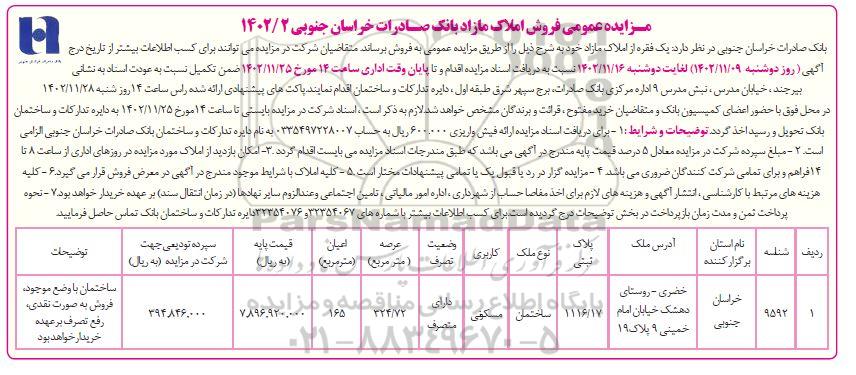 مـزایده عمومی فروش املاک مازاد بانک صـادرات خراسان جنوبی ۲ / ۱۴۰۲
بانک صادرات خراسان جنوبی در نظر دارد: یک فقره از املاک مازاد خود به شرح ذیل را از طریق مزایده عمومی به فروش برساند. متقاضیان شرکت در مزایده می توانند برای کسب اطلاعات بیشتر از تاریخ درج
آگهی ( روز دوشنبه ۱۴۰۲/۱۱/۰۹) لغایت دوشنبه ۱۴۰۲/۱۱/۱۶ نسبت به دریافت اسناد مزایده اقدام و تا پایان وقت اداری ساعت ۱۴ مورخ ۱۴۰۲/۱۱/۲۵ ضمن تکمیل نسبت به عودت اسناد به نشانی
بیرجند ، خیابان مدرس ، نبش مدرس ۹ اداره مرکزی بانک صادرات، برج سپهر شرق طبقه اول ، دایره تدارکات و ساختمان اقدام نمایند.پاکت های پیشنهادی ارائه شده راس ساعت ۱۴ روز شنبه ۱۴۰۲/۱۱/۲۸
در محل فوق با حضور اعضای کمیسیون بانک و متقاضیان خرید مفتوح ، قرائت و برندگان مشخص خواهد شد.لازم به ذکر است ، اسناد شرکت در مزایده بایستی تا ساعت ۱۴ مورخ ۱۴۰۲/۱۱/۲۵ به دایره تدارکات و ساختمان
بانک تحویل و رسید اخذ گردد. توضیحات و شرایط : ۱ - برای دریافت اسناد مزایده ارائه فیش واریزی ۶۰۰.۰۰۰ ریال به حساب ۰۳۳۵۴۹۷۲۲۸۰۰۷ به نام دایره تدارکات و ساختمان بانک صادرات خراسان جنوبی الزامی
است. ۲ - مبلغ سپرده شرکت در مزایده معادل ۵ درصد قیمت پایه مندرج در آگهی می باشد که طبق مندرجات اسناد مزایده می بایست اقدام گردد. ۳- امکان بازدید از املاک مورد مزایده در روزهای اداری از ساعت ۸ تا
۱۴ فراهم و برای تمامی شرکت کنندگان ضروری می باشد. ۴ - مزایده گزار در رد یا قبول یک یا تمامی پیشنهادات مختار است. ۵ - کلیه املاک با شرایط موجود مندرج در آگهی در معرض فروش قرار می گیرد. ۶ - کلیه
هزینه های مرتبط با کارشناسی ، انتشار آگهی و هزینه های لازم برای اخذ مفاصا حساب از شهرداری ، اداره امور مالیاتی ، تامین اجتماعی و عندالزوم سایر نهادها (در زمان انتقال سند) بر عهده خریدار خواهد بود. ۷ - نحوه
پرداخت ثمن و مدت زمان بازپرداخت در بخش توضیحات درج گردیده است.برای کسب اطلاعات بیشتر با شماره های ۳۲۳۵۴۰۶۷ و ۳۲۳۵۴۰۷۶ دایره تدارکات و ساختمان بانک تماس حاصل فرمایید
ردیف شناسه نام استان برگزار کننده آدرس ملک پلاک ثبتی نوع ملک کاربری وضعیت تصرف عرصه ( متر مربع) اعیان (مترمربع) قیمت پایه (به ریال) سپرده تودیعی جهت شرکت در مزایده (به ریال) توضیحات
۱ ۹۵۹۲ خراسان جنوبی خضری - روستای دهشک خیابان امام خمینی ۹ پلاک ۱۹ ۱۱۱۶/۱۷ ساختمان مسکونی دارای متصرف ۳۲۴/۷۲ ۱۶۵ ۷،۸۹۶،۹۲۰،۰۰۰ ۳۹۴،۸۴۶،۰۰۰ ساختمان با وضع موجود، فروش به صورت نقدی، رفع تصرف بر عهده خریدار خواهد بود
ParsNamadData
پایگاه اطلاع رسانی مناقصه و مزایده
۰۲۱-۸۸۳۴۹۶۷۰-۵